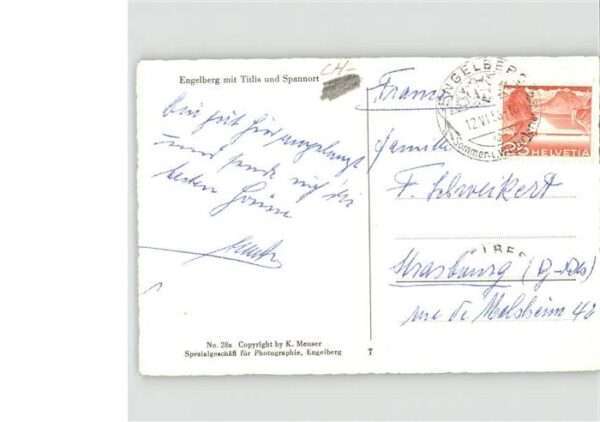 Engelberg mit Titlis und Spannort
CH-
Bin gut hier angelangt
und sende
besten
No. 28a Copyright by K. Meuser
Spezialgeschäft für Photographie, Engelberg
7
ENGELBERG
12.VI.5
Sommer-
25
HELVETIA
Familie
F. Schweikert
Strasbourg
rue de Molsheim 42